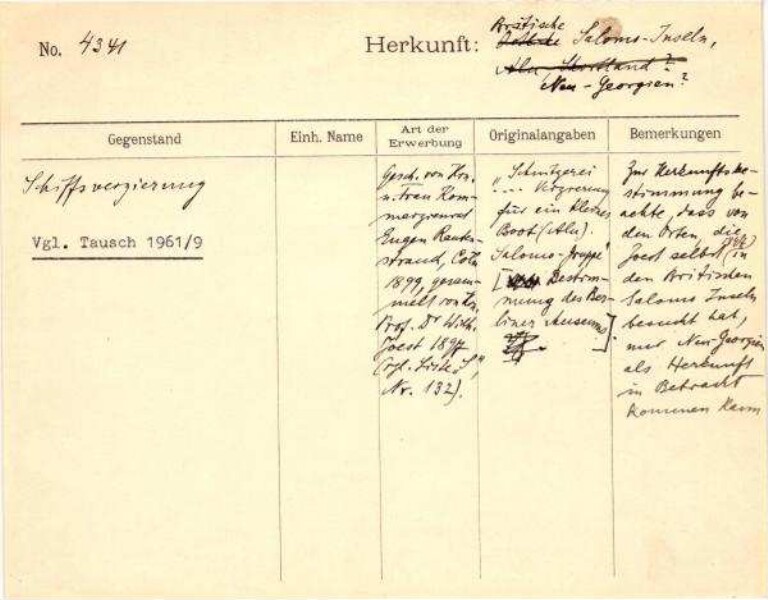 No. 4341
Herkunft: Britische
Östliche Salomo-Inseln,
Alu Shortland?
Neu-Georgien?
Gegenstand
Einh. Name
Art der
Erwerbung
Originalangaben
Bemerkungen
Schiffsverzierung
Vgl. Tausch 1961/9
Gesch. von Hrn.
u. Frau Kom-
merzienrat
Eugen Rauten-
strauch, Cöln
1899, gesam-
melt von Hn.
Prof. Dr Wilh.
Joest 1897
(vgl. Liste J",
Nr. 132).
"Schnitzerei
.... Verzierung
für ein kleines
Boot (Alu).
Salomo-Gruppe"
[Bestim-
mung des Ber-
liner Museums]
Zur Herkunftsbe-
stimmung be-
achte, dass von
den Orten, die
Joest selbst (in
den Britischen
Salomo Inseln
besucht hat,
nur Neu-Georgien
als Herkunft
in Betracht
kommen kann